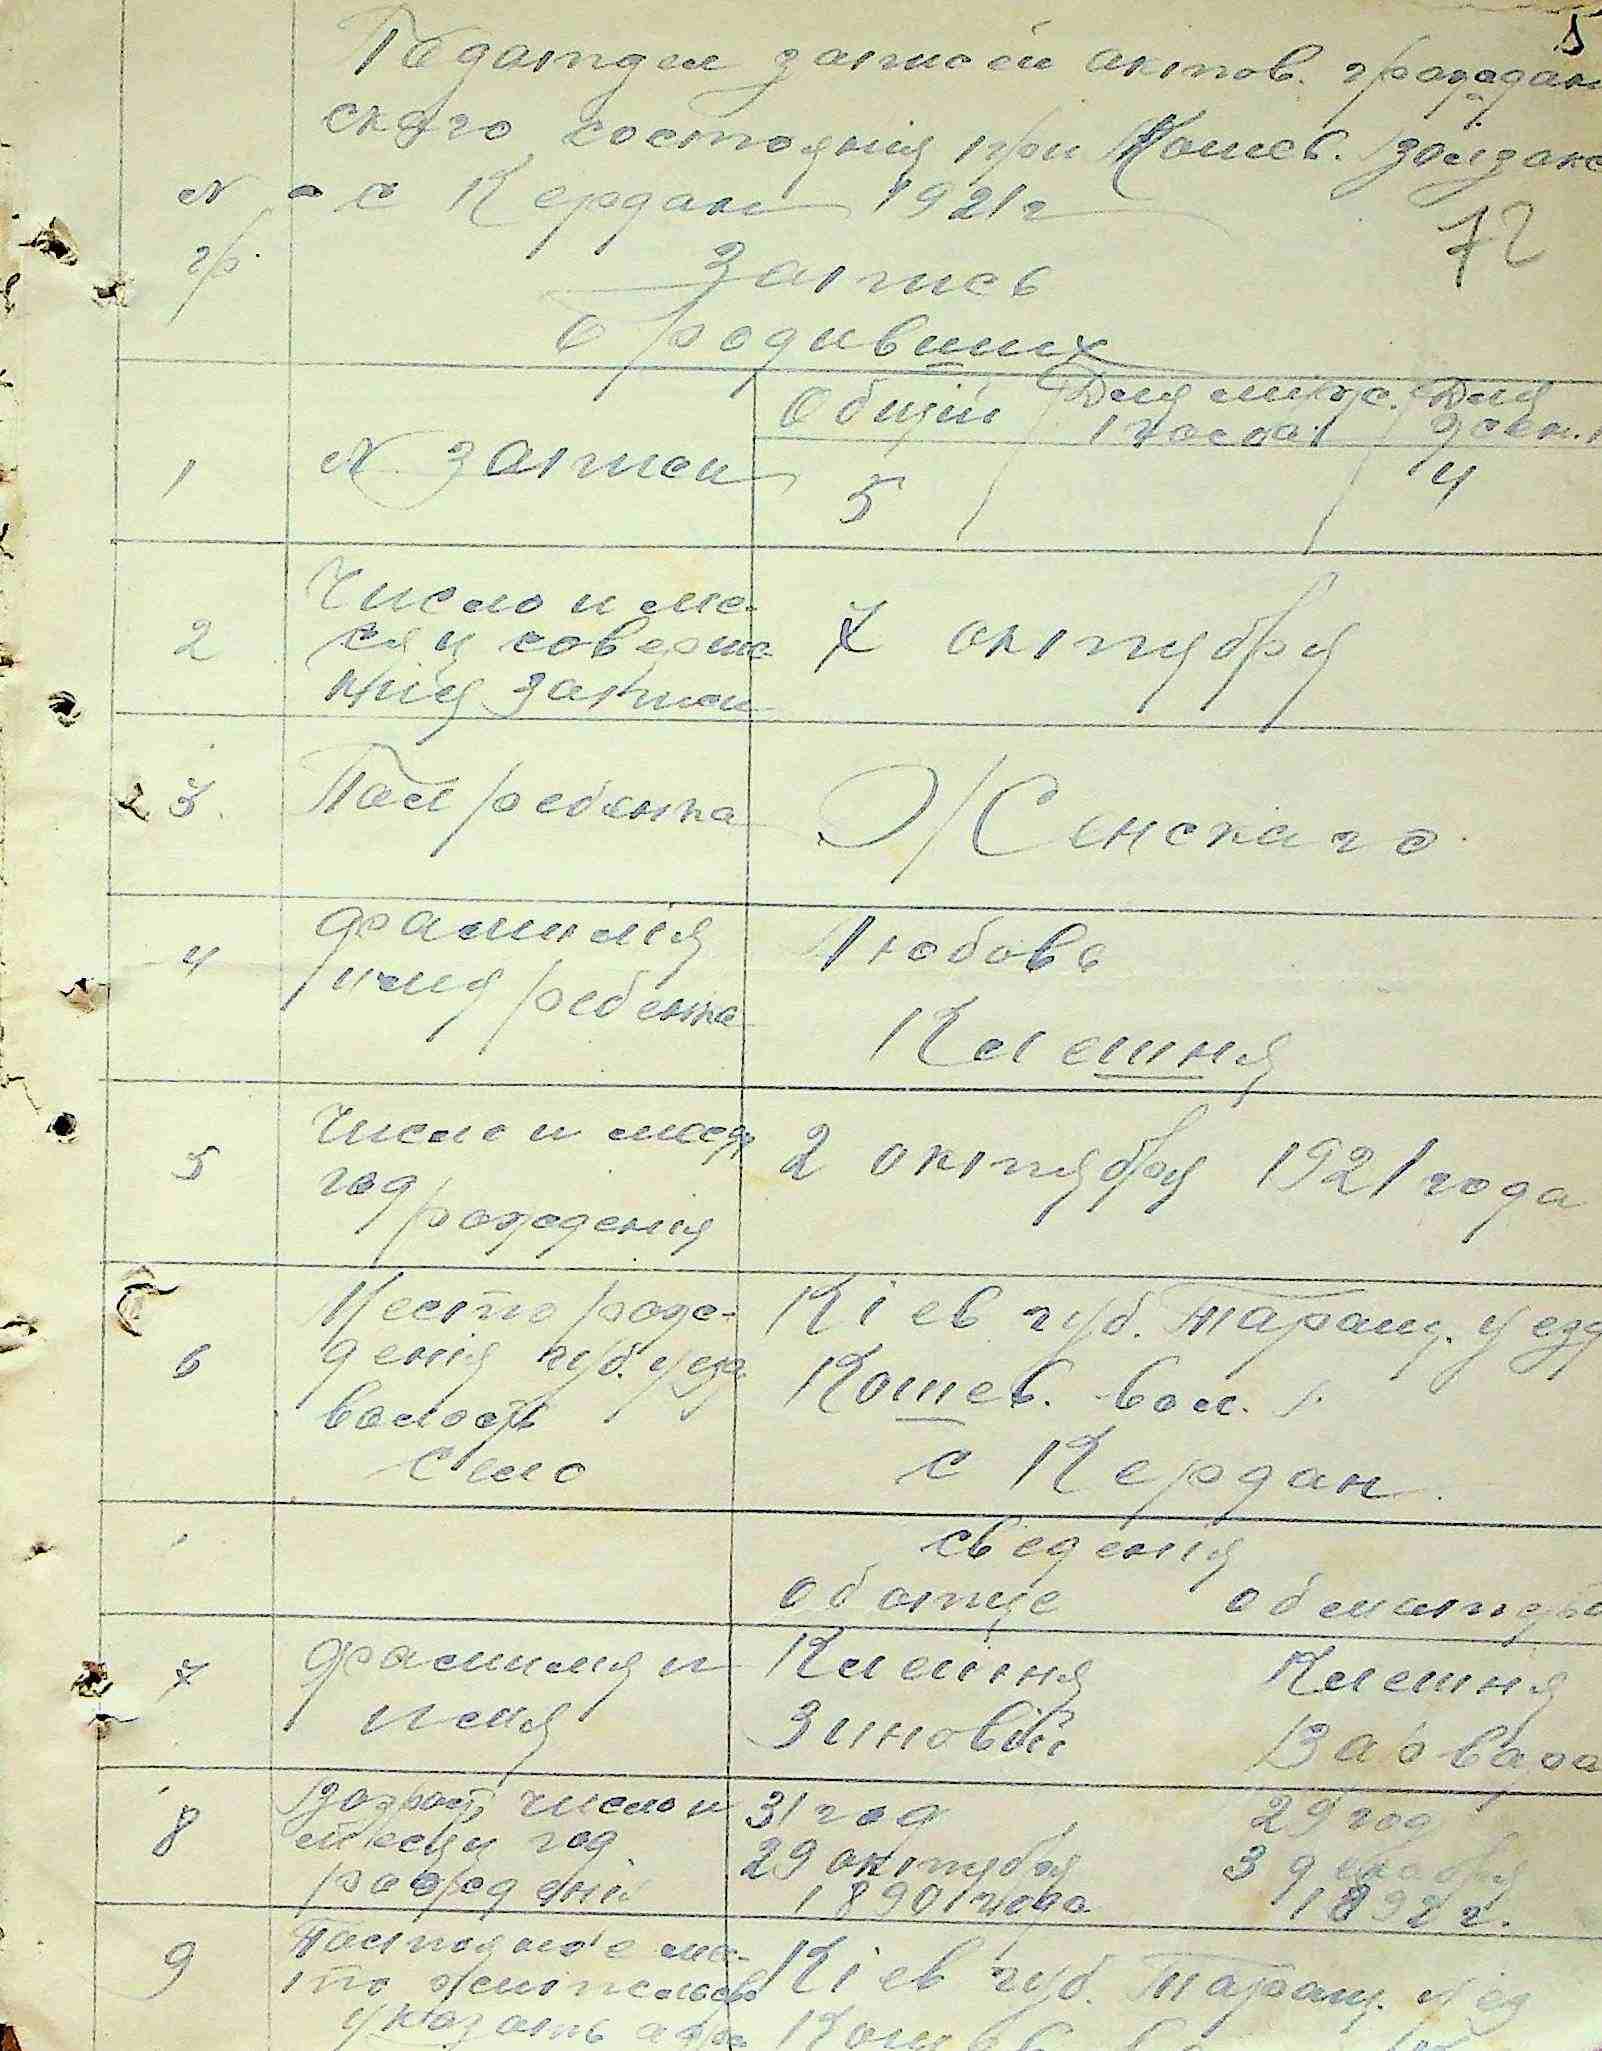 5
Подотдел записи актов. граждан
скаго состоянія при Кошев.
с Кердан 1921 г
№
гр.
72
Запись
о родивших
1 № записи
Общій Для муж. Для
5 4
2 Число и ме-
сяц соверше-
нія записи
7 октября
3 Пол ребенка Женскаго
4 Фамилія
имя ребенка
Любовь
Клешня
5 Число и месяц
год
рождения
2 октября 1921 года
6 Место рож-
денія губ. уезд
волость
село
Кіев губ. Таращ. уезд
Кошев. вол.
с Кердан
сведенія
об отце об матере
7 Фамилия и
имя
Клешня Клешня
Зиновій Варвара
8 Возраст, число и
месяц год
рождения
31 год 29 год
29 октября 3 декабря
1890 года 1892 г.
9 Постоянное ме-
сто жительство
указать адре
Кіев губ. Таращ. уезд